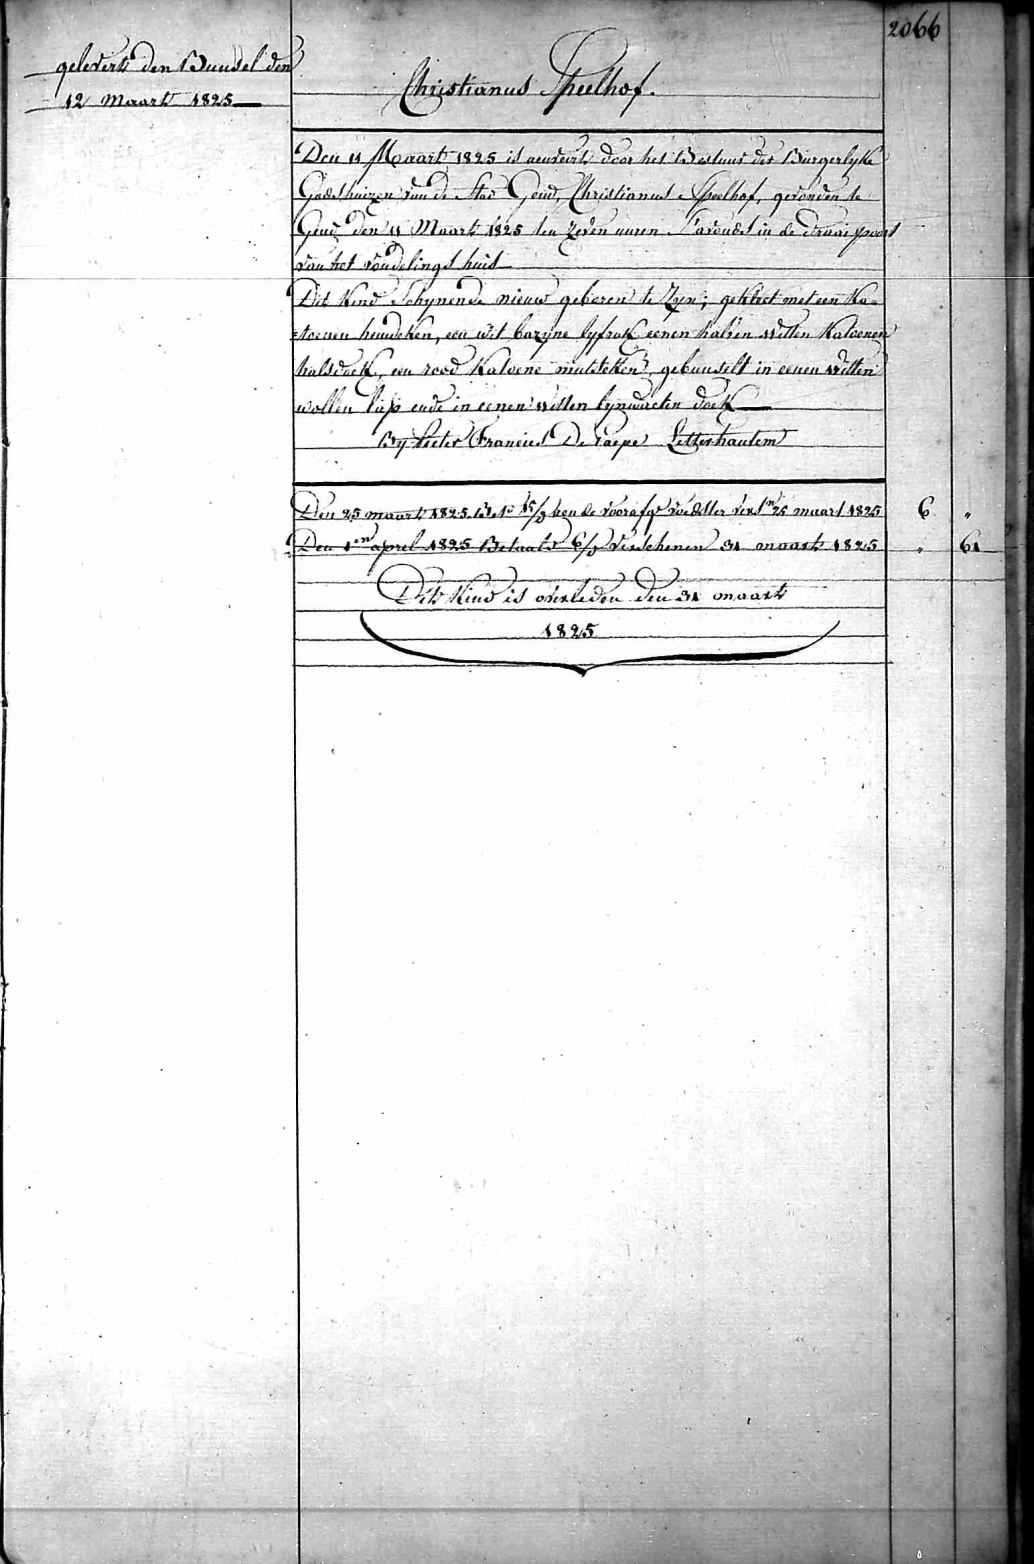 2066
gelevert den Bunsel den
12 Maart 1825
Christianus Speelhof.
Den 11 Maart 1825 is aenveirt door het Bestuur der Burgerlyke
Godshuizen van de Stad Gend, Christianus Speelhof, gevonden te
Gend den 11 Maart 1825 ten zeven uuren s'avonds in de draai poort
van het vondelings huis
Dit Kind Schynende nieuw geboren te Zyn; gekleet met een Ka=
=toenen hemdeken, een wit bazyne lyfrok eenen halven witten Katoenen
halsdoek, een rood Katoene mutsteken, gebunselt in eenen witten
wollen liep ende in eenen witten lynwaeten doek
By Pieter Francies De Paepe Letterhautem
Den 25 maart 1825 aen de voorafge voedster 25 maart 1825 6 "
Den 1en april 1825 Betaald 6/ verschenen 31 maart 1825 " 61
Dit Kind is overleden den 31 maart
1825